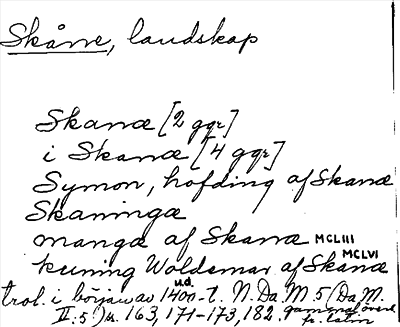 Skåne, landskap
Skanæ [2 ggr]
i Skanæ [4 ggr]
Symon, höfding af Skanæ
Skaningæ
mangæ af Skanæ MCLIII
kuning Woldemar af Skanæ MCLVI
u.d.
trol. i början av 1400-t. N. Da. M. 5 (Da. M.
II:5) s. 163, 171-173, 182. gammal övers.
fr. latin